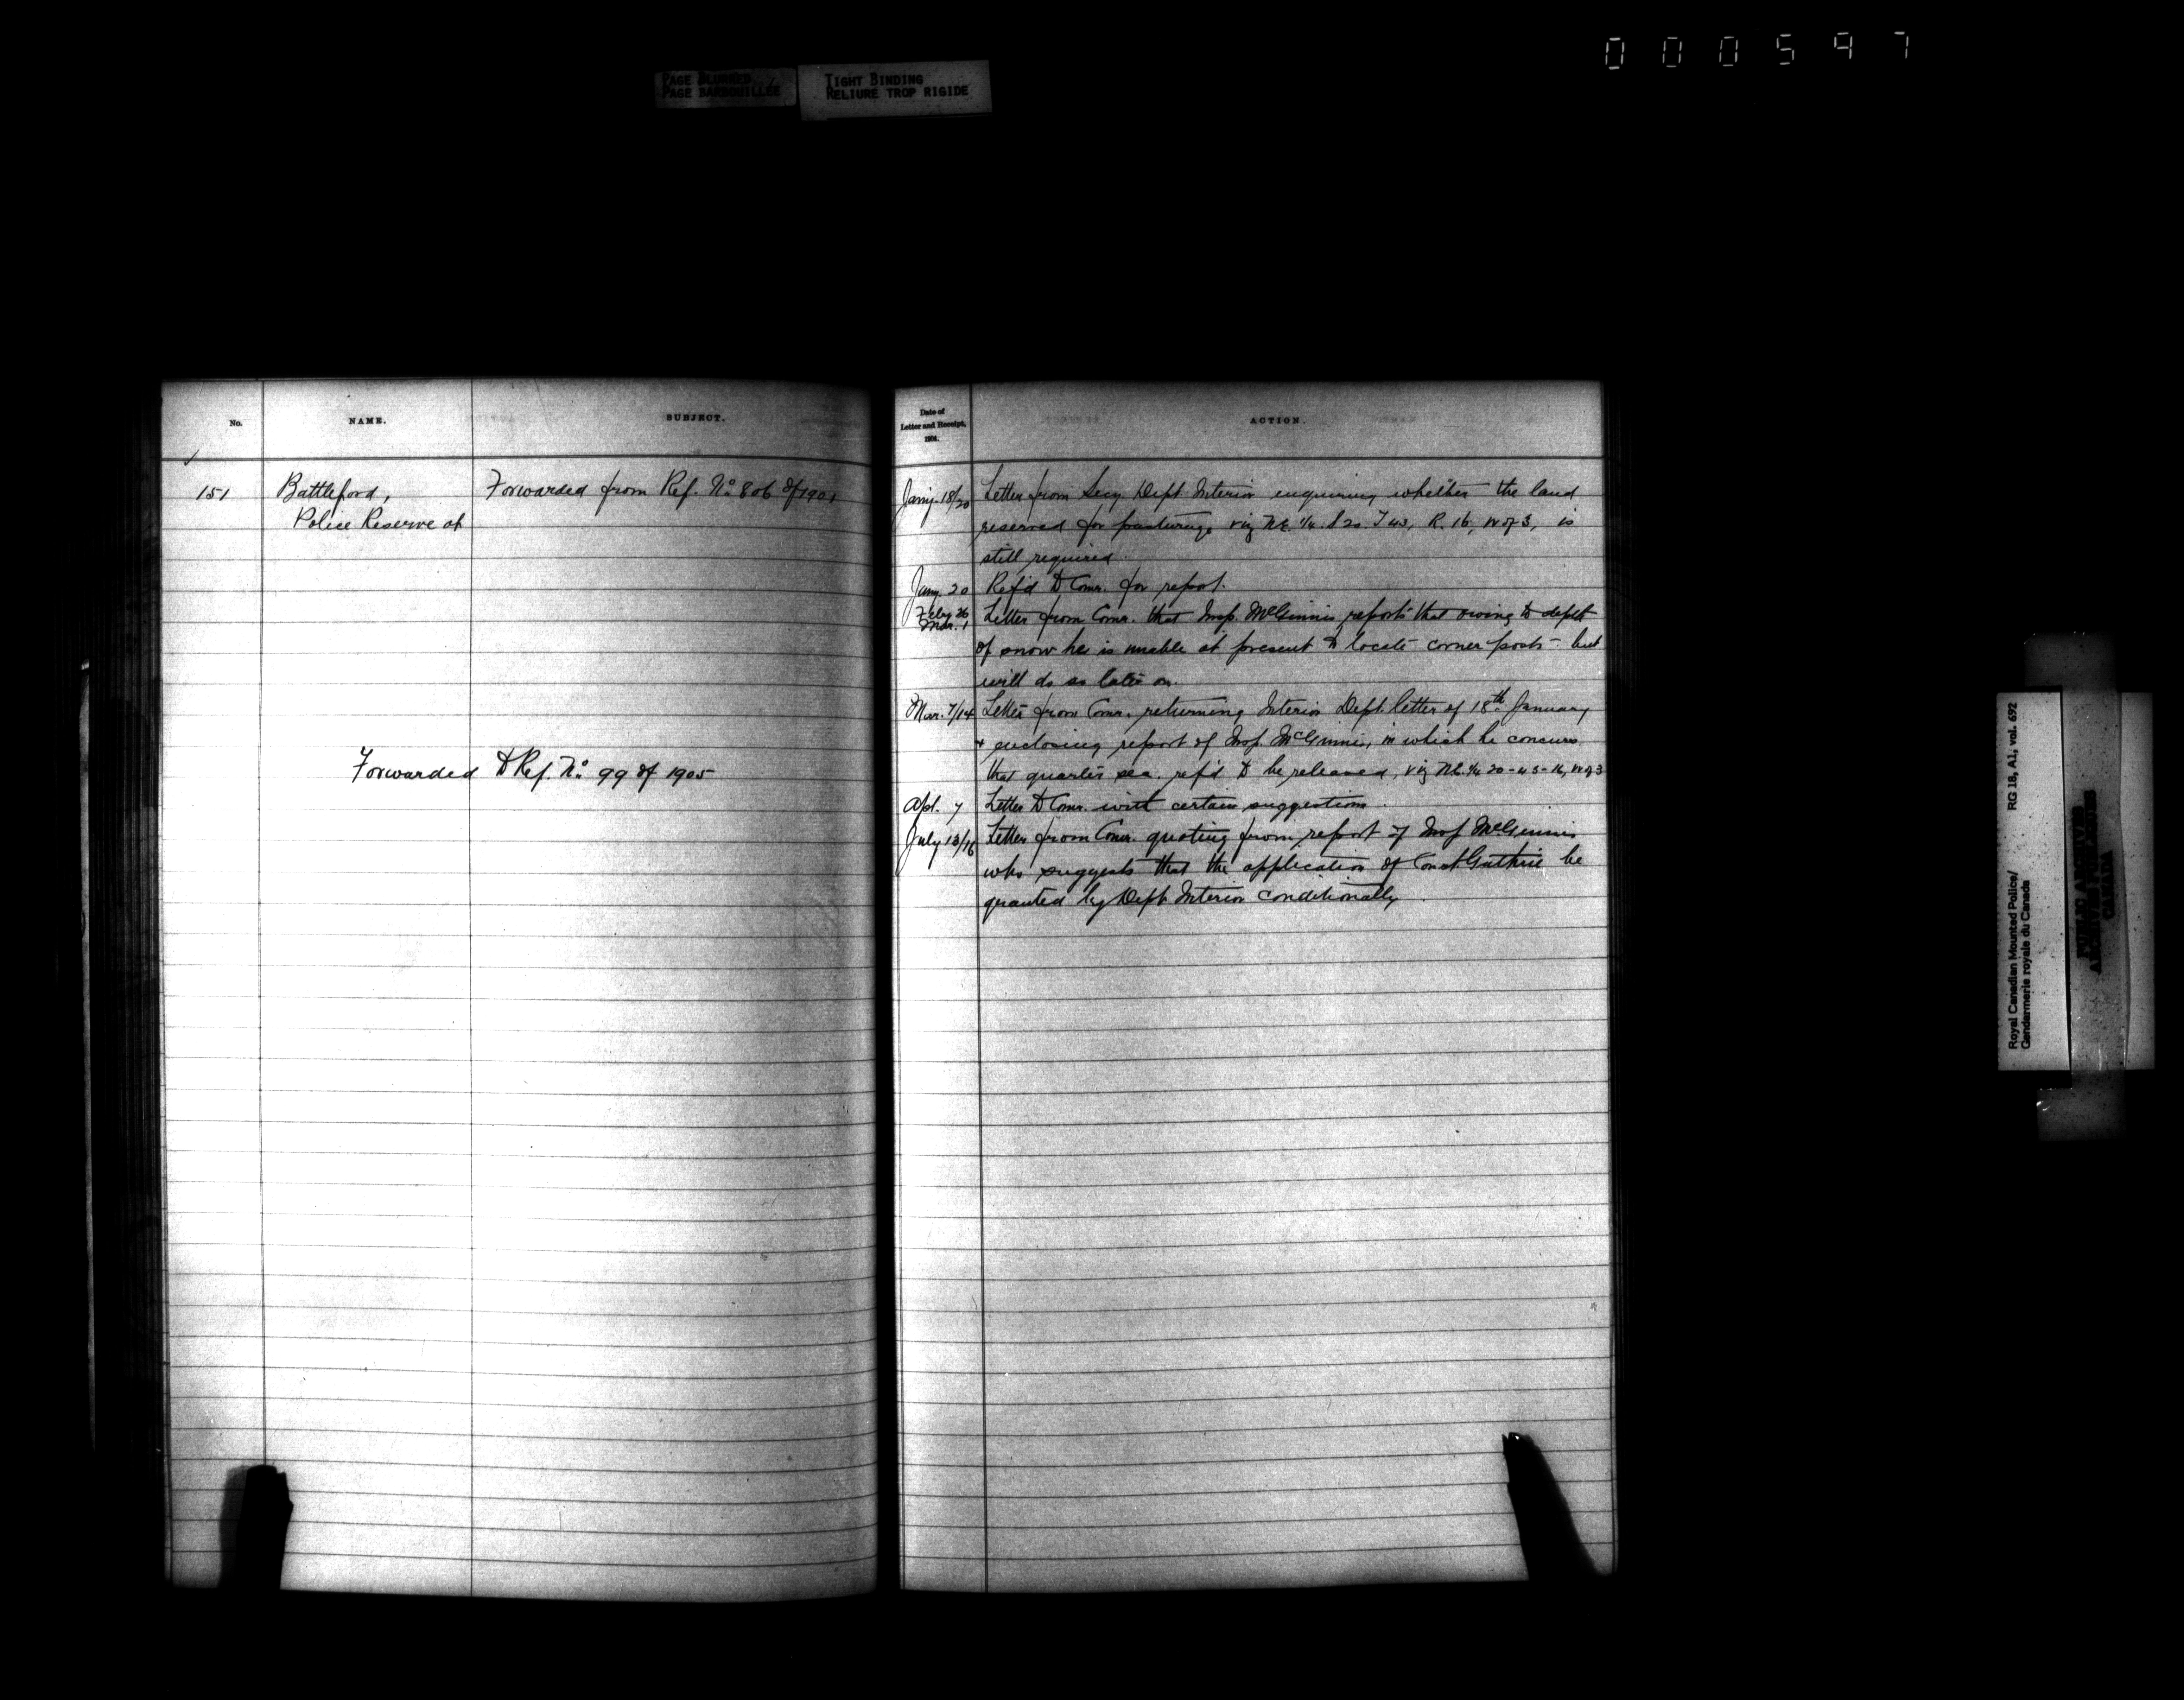 000597
PAGE BLURRED
PAGE BARBOUILLÉE
TIGHT BINDING
RELIURE TROP RIGIDE
No.
NAME.
SUBJECT.
151
Battleford,
Police Reserve at
Forwarded from Ref. No 806 of 1901
Forwarded to Ref. No 99 of 1905
Date of
Letter and Receipt,
1904.
ACTION.
Jany. 18/20 Letter from Secy. Dept. Interior enquiring whether the land
reserved for pasturage viz N.E. 1/4 S 20 T 43, R. 16, W of 3, is
still required.
Jany. 20 Ref'd to Comr. for report.
Feby 26
Mar. 1 Letter from Comr. that Insp. McGinnis reports that owing to depth
of snow he is unable at present to locate corner posts - but
will do so later on.
Mar. 7/14 Letter from Comr. returning Interior Dept. letter of 18th January
+ enclosing report of Insp. McGinnis, in which he concurs
that quarter sec. ref'd to be released, viz N.E. 1/4 20-43-16, W of 3
Apl. 7 Letter to Comr. with certain suggestions.
July 13/16 Letter from Comr. quoting from report of Insp McGinnis
who suggests that the application of Const. Guthrie be
granted by Dept. Interior conditionally.
RG 18, A1, vol. 692
Royal Canadian Mounted Police/
Gendarmerie royale du Canada
PUBLIC ARCHIVES
ARCHIVES PUBLIQUES
CANADA